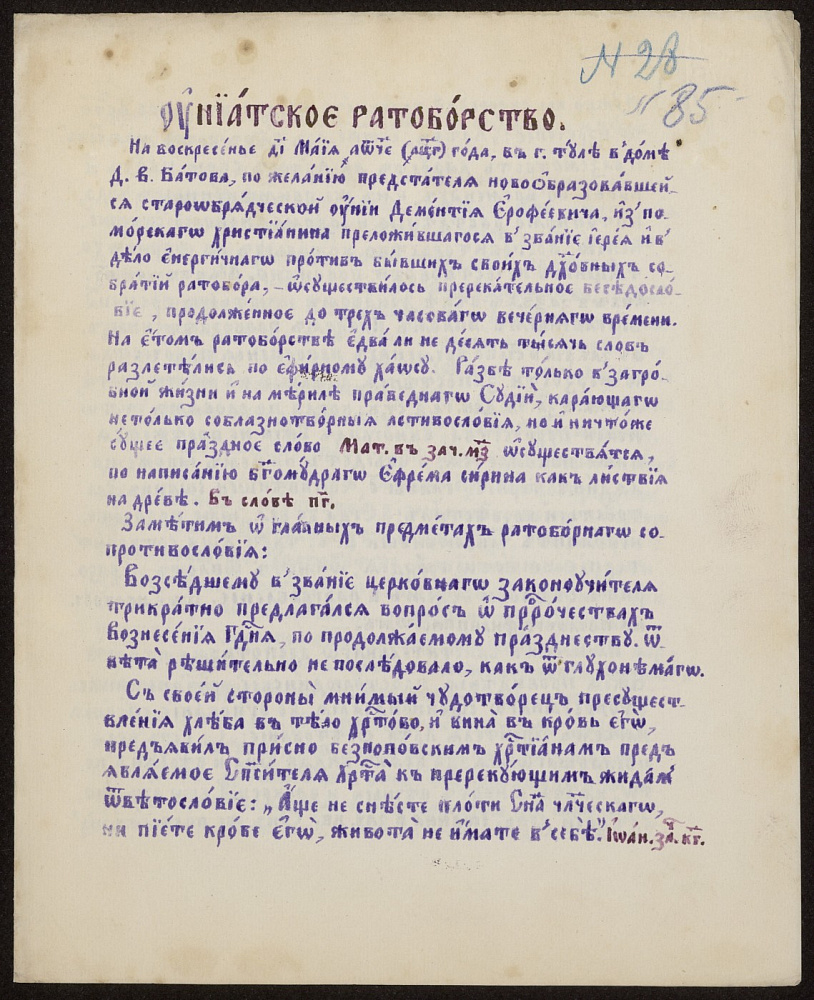 N 28
" 85 -
Оу҆нїа́тское ратобо́рство.
На воскресе́нье ді Маі́ѧ (ац҃г) го́да, въ г. Ту́лѣ в' до́мѣ
Д. В. Ба́това, по жела́нїю предста́телѧ новоѡбразова́вшей-
сѧ староѡбрѧ́дческой оу҆́нїи Деме́нтїѧ Є҆рофе́евича, и҆з' по-
мо́рскагѡ христїа́нина преложи́вшагосѧ в' зва́нїе і҆ере́ѧ и҆ в'
дѣ́ло є҆нерги́чнагѡ про́тивъ бы́вшихъ свои́хъ дх҃о́вныхъ со-
бра́тїй ратобо́ра, – ѡ҆существи́лось пререка́тельное бесѣдосло́-
вїе, продолже́нное до трехъ часова́гѡ вече́рнѧгѡ вре́мени.
На є҆́томъ ратобо́рствѣ є҆два́ ли не де́сѧть ты́сѧчь словъ
разлетѣ́лись по є҆фи́рному ха́ѡсу. Ра́звѣ то́лько в' загро́-
бной жи́зни и҆ на мѣ́рилѣ пра́веднагѡ Судїи̂, кара́ющагѡ
нето́лько соблазнотво́рныѧ лстивосло́вїѧ, но и҆ ничто́же
су́щее пра́здное сло́во Мат. въ зач. мз҃ ѡ҆существѧ́тсѧ,
по написа́нїю бг҃ому́драгѡ Є҆фре́ма си́рина какъ ли́ствїѧ
на дре́вѣ. Въ сло́вѣ пг҃.
Замѣ́тимъ ѡ҆ гла́вныхъ предме́тахъ ратобо́рнагѡ со-
противосло́вїѧ:
Возсѣ́дшему в' зва́нїе церко́внагѡ законоучи́телѧ
трикра́тно предлага́лсѧ вопро́съ ѡ҆ прⷪ҇ро́чествахъ
Вознесе́нїѧ Гдⷭ҇нѧ, по продолжа́емому пра́зднеству. Ѿ-
вѣ́та рѣши́тельно не послѣ́довало, какъ ѿ глухонѣма́гѡ.
Съ свое́й стороны̀ мни́мый чудотво́рецъ пресущест-
вле́нїѧ хлѣ́ба въ тѣ́ло хрⷭ҇то́во, и҆ вина̀ въ кро́вь є҆гѡ̀,
предъѧви́лъ при́сно безпопо́вскимъ хрⷭ҇тїа́намъ предъ
ѧвлѧ́емое Спⷭ҇и́телѧ Хрⷭ҇та̀ къ пререку́ющимъ жида́м'
ѿвѣтосло́вїе: „А҆́ще не снѣ́сте пло́ти Сн҃а чл҃ческагѡ,
ни пїе́те кро́ве є҆гѡ̀, живота̀ не и҆́мате в' себѣ̀". І҆ѡа́н. за҃. кг҃.